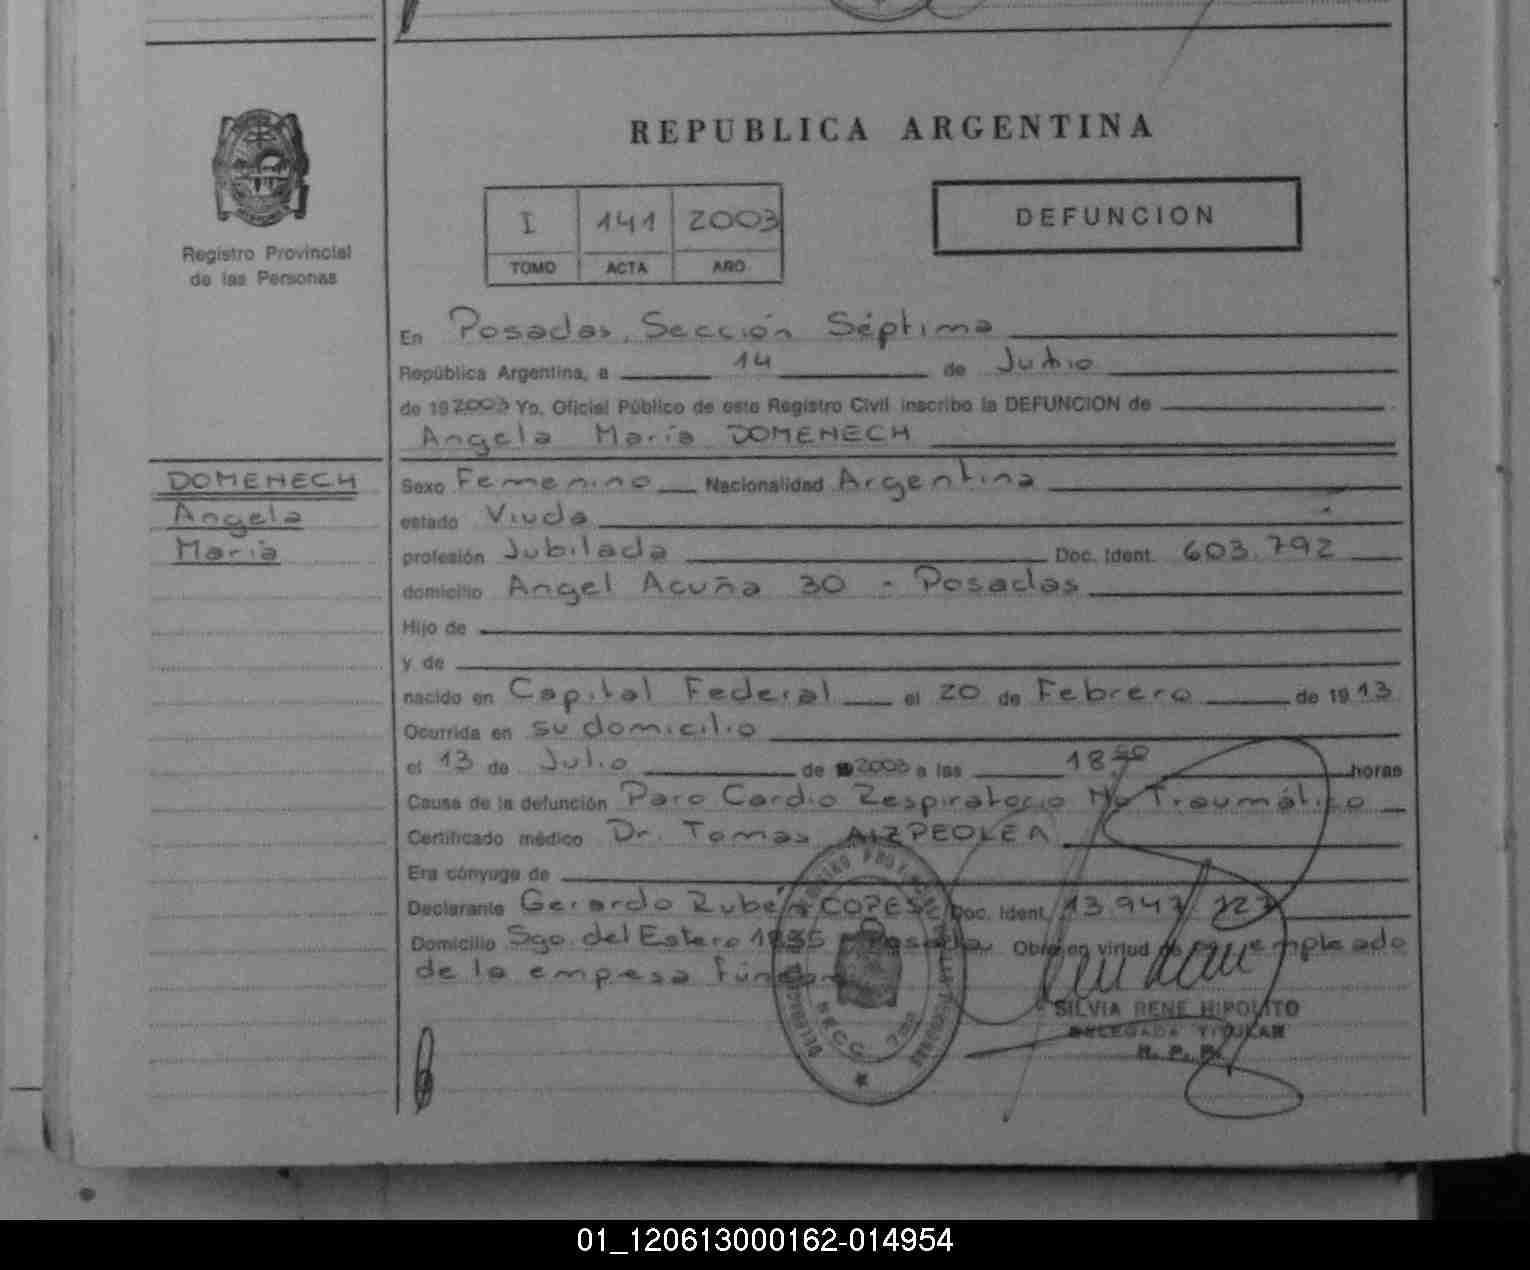 REPUBLICA ARGENTINA
Registro Provincial
de las Personas
I 141 2003
TOMO ACTA AÑO
DEFUNCION
En Posadas, Sección Séptima
República Argentina, a 14 de Julio
de 19 2003 Yo, Oficial Público de este Registro Civil inscribo la DEFUNCION de
Angela María DOMENECH
DOMENECH
Angela
María
Sexo Femenino Nacionalidad Argentina
estado Viuda
profesión Jubilada Doc. Ident. 603.792
domicilio Angel Acuña 30 - Posadas
Hijo de
y de
nacido en Capital Federal el 20 de Febrero de 1913
Ocurrida en su domicilio
el 13 de Julio de 2003 a las 18 horas
Causa de la defunción Paro Cardio Respiratorio No Traumático
Certificado médico Dr. Tomas AIZPEOLEA
Era cónyuge de
Declarante Gerardo Rubén Doc. Ident. 13.947.727
Domicilio Sgo. del Estero 1835 - Posadas Obra en virtud de empleado
de la empresa
SILVIA RENE HIPOLITO
DELEGADA TITULAR
R. P. P.
SECC. 7ma
01_120613000162-014954